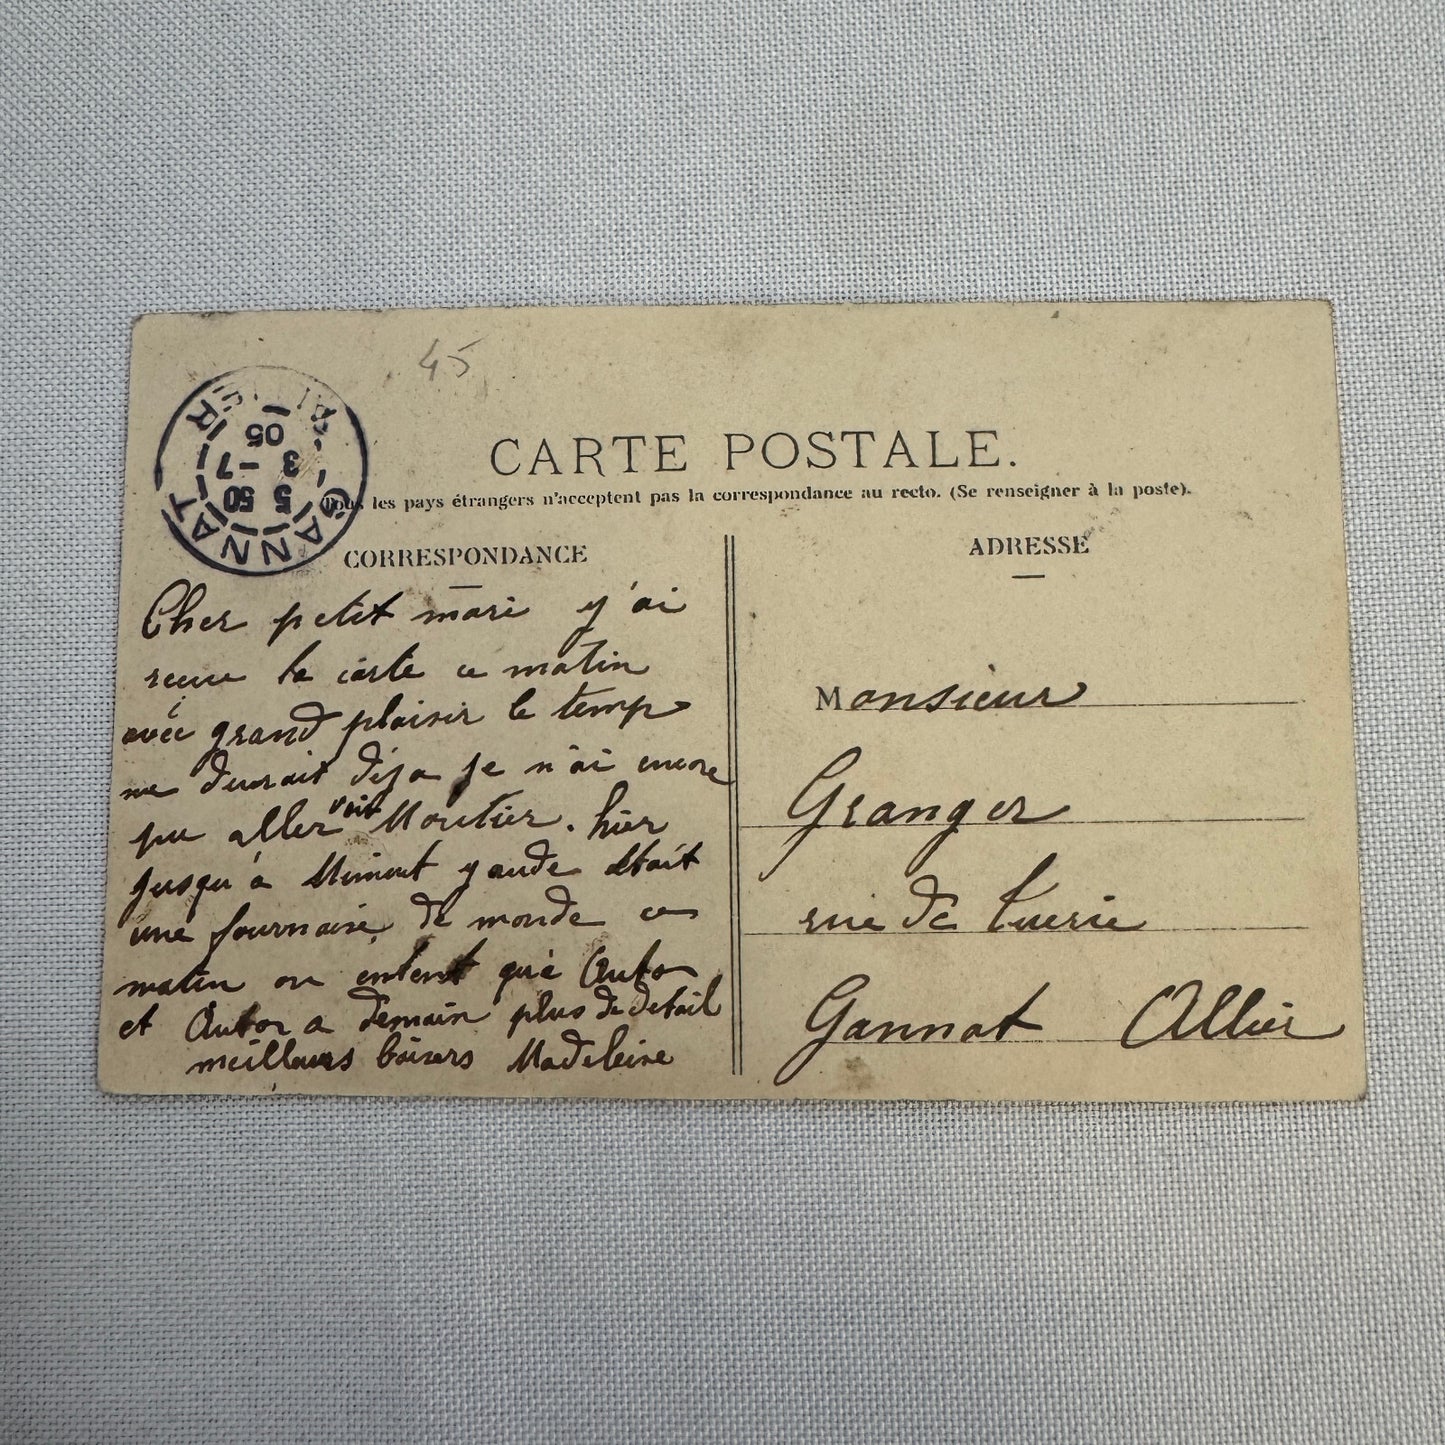 45
GANNAT
ALLIER
5 50
3 -7
05
CARTE POSTALE.
Tous les pays étrangers n'acceptent pas la correspondance au recto. (Se renseigner à la poste).
CORRESPONDANCE
ADRESSE
Cher petit mari y'ai
reçue ta carte ce matin
avec grand plaisir le temp
me durait déja je n'ai encore
pu aller voir Moutier. hier
jusqu'à Minuit y aude était
une fournaise de monde ce
matin on entent que Auto
et Auto a demain plus de detail
meilleurs baisers Madeleine
Monsieur
Granger
rue de
Gannat Allier